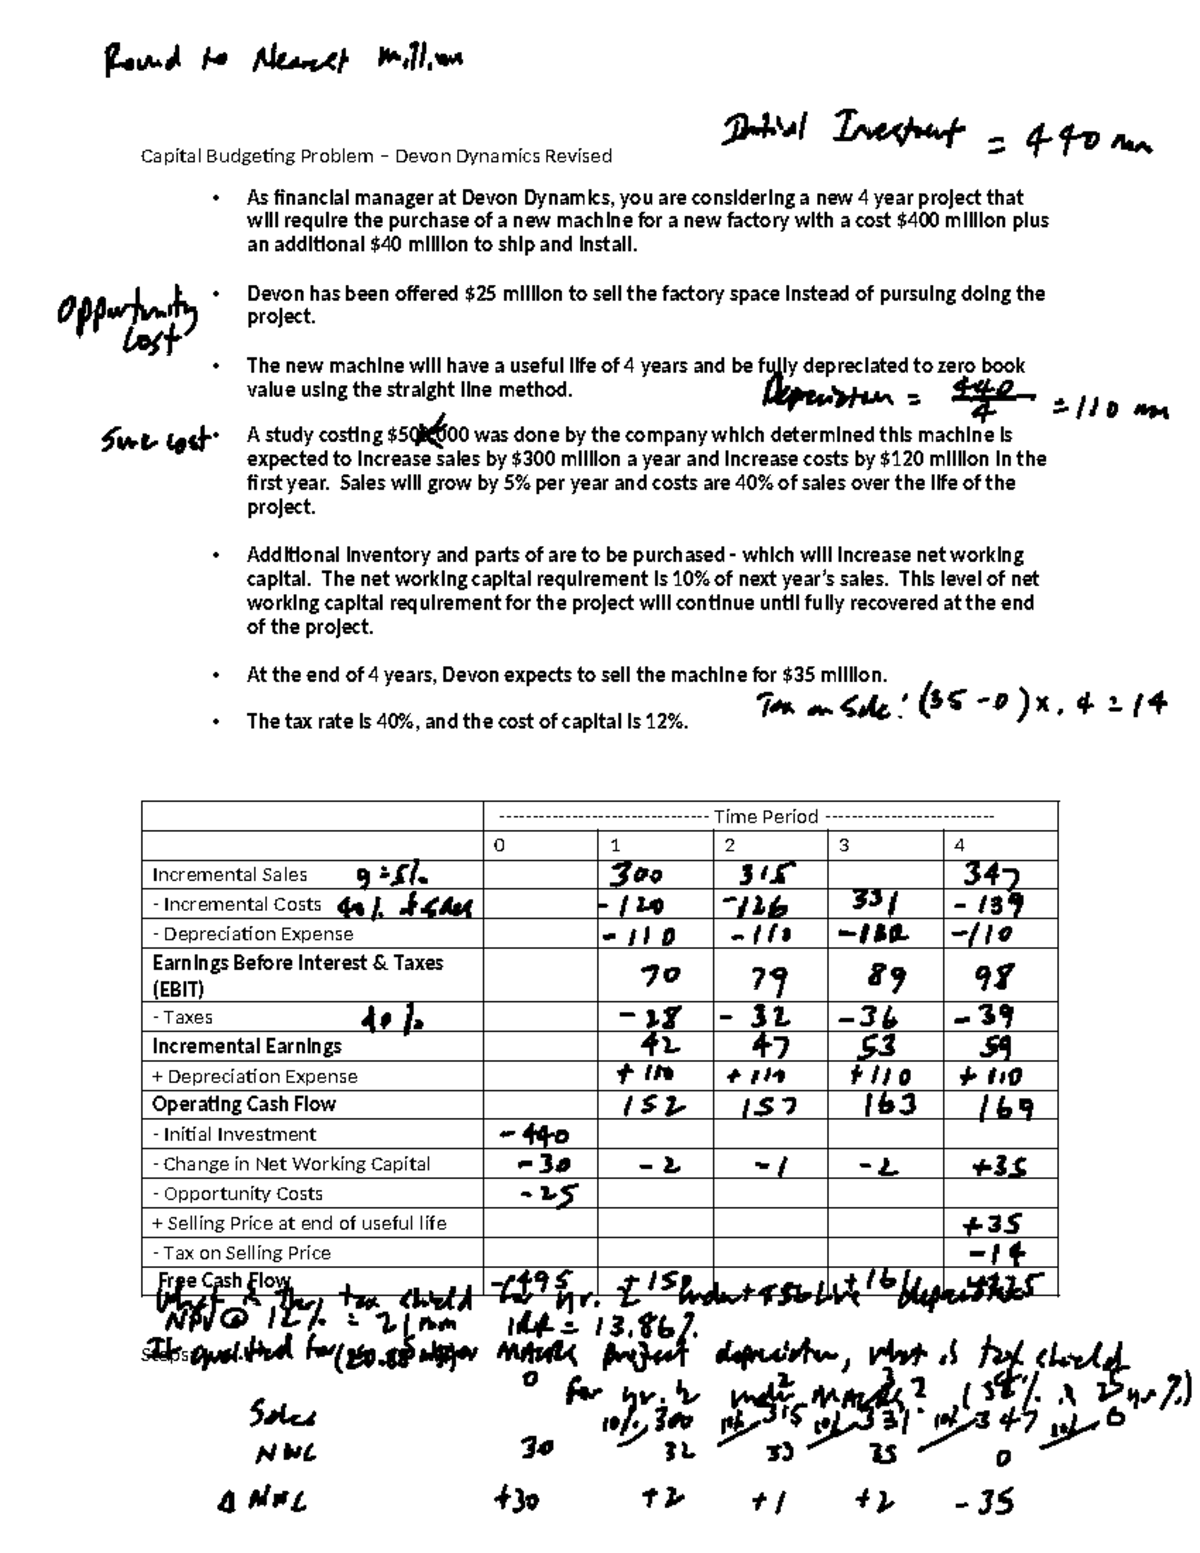 Round to Nearest Million
Initial Investment = 440 mm
Capital Budgeting Problem – Devon Dynamics Revised
• As financial manager at Devon Dynamics, you are considering a new 4 year project that
will require the purchase of a new machine for a new factory with a cost $400 million plus
an additional $40 million to ship and install.
Opportunity Cost
• Devon has been offered $25 million to sell the factory space instead of pursuing doing the
project.
• The new machine will have a useful life of 4 years and be fully depreciated to zero book
value using the straight line method.
Depreciation = 440/4 = 110 mm
Sunk cost
• A study costing was done by the company which determined this machine is
expected to increase sales by $300 million a year and increase costs by $120 million in the
first year. Sales will grow by 5% per year and costs are 40% of sales over the life of the
project.
• Additional inventory and parts of are to be purchased - which will increase net working
capital. The net working capital requirement is 10% of next year's sales. This level of net
working capital requirement for the project will continue until fully recovered at the end
of the project.
• At the end of 4 years, Devon expects to sell the machine for $35 million.
Tax on Sale: (35 - 0) x .4 = 14
• The tax rate is 40%, and the cost of capital is 12%.
------------------------------- Time Period -------------------------
0 1 2 3 4
Incremental Sales g = 5% 300 315 347
- Incremental Costs 40% of sales -120 -126 331 -139
- Depreciation Expense -110 -110 -110
Earnings Before Interest & Taxes
(EBIT) 70 79 89 98
- Taxes 40% -28 -32 -36 -39
Incremental Earnings 42 47 53 59
+ Depreciation Expense +110 +110 +110 +110
Operating Cash Flow 152 157 163 169
- Initial Investment -440
- Change in Net Working Capital -30 -2 -1 -2 +35
- Opportunity Costs -25
+ Selling Price at end of useful life +35
- Tax on Selling Price -14
Free Cash Flow -495
What is the tax shield for yr. 2 under
NPV @ 12% = 21 mm IRR = 13.86%
If qualified for MACRS project depreciation, what is tax shield
0 for yr. 2 under MACRS?
Sales 10% 300 10% 315 10% 331 10% 347 10% 0
NWC 30 32 33 35 0
Δ NWC +30 +2 +1 +2 -35